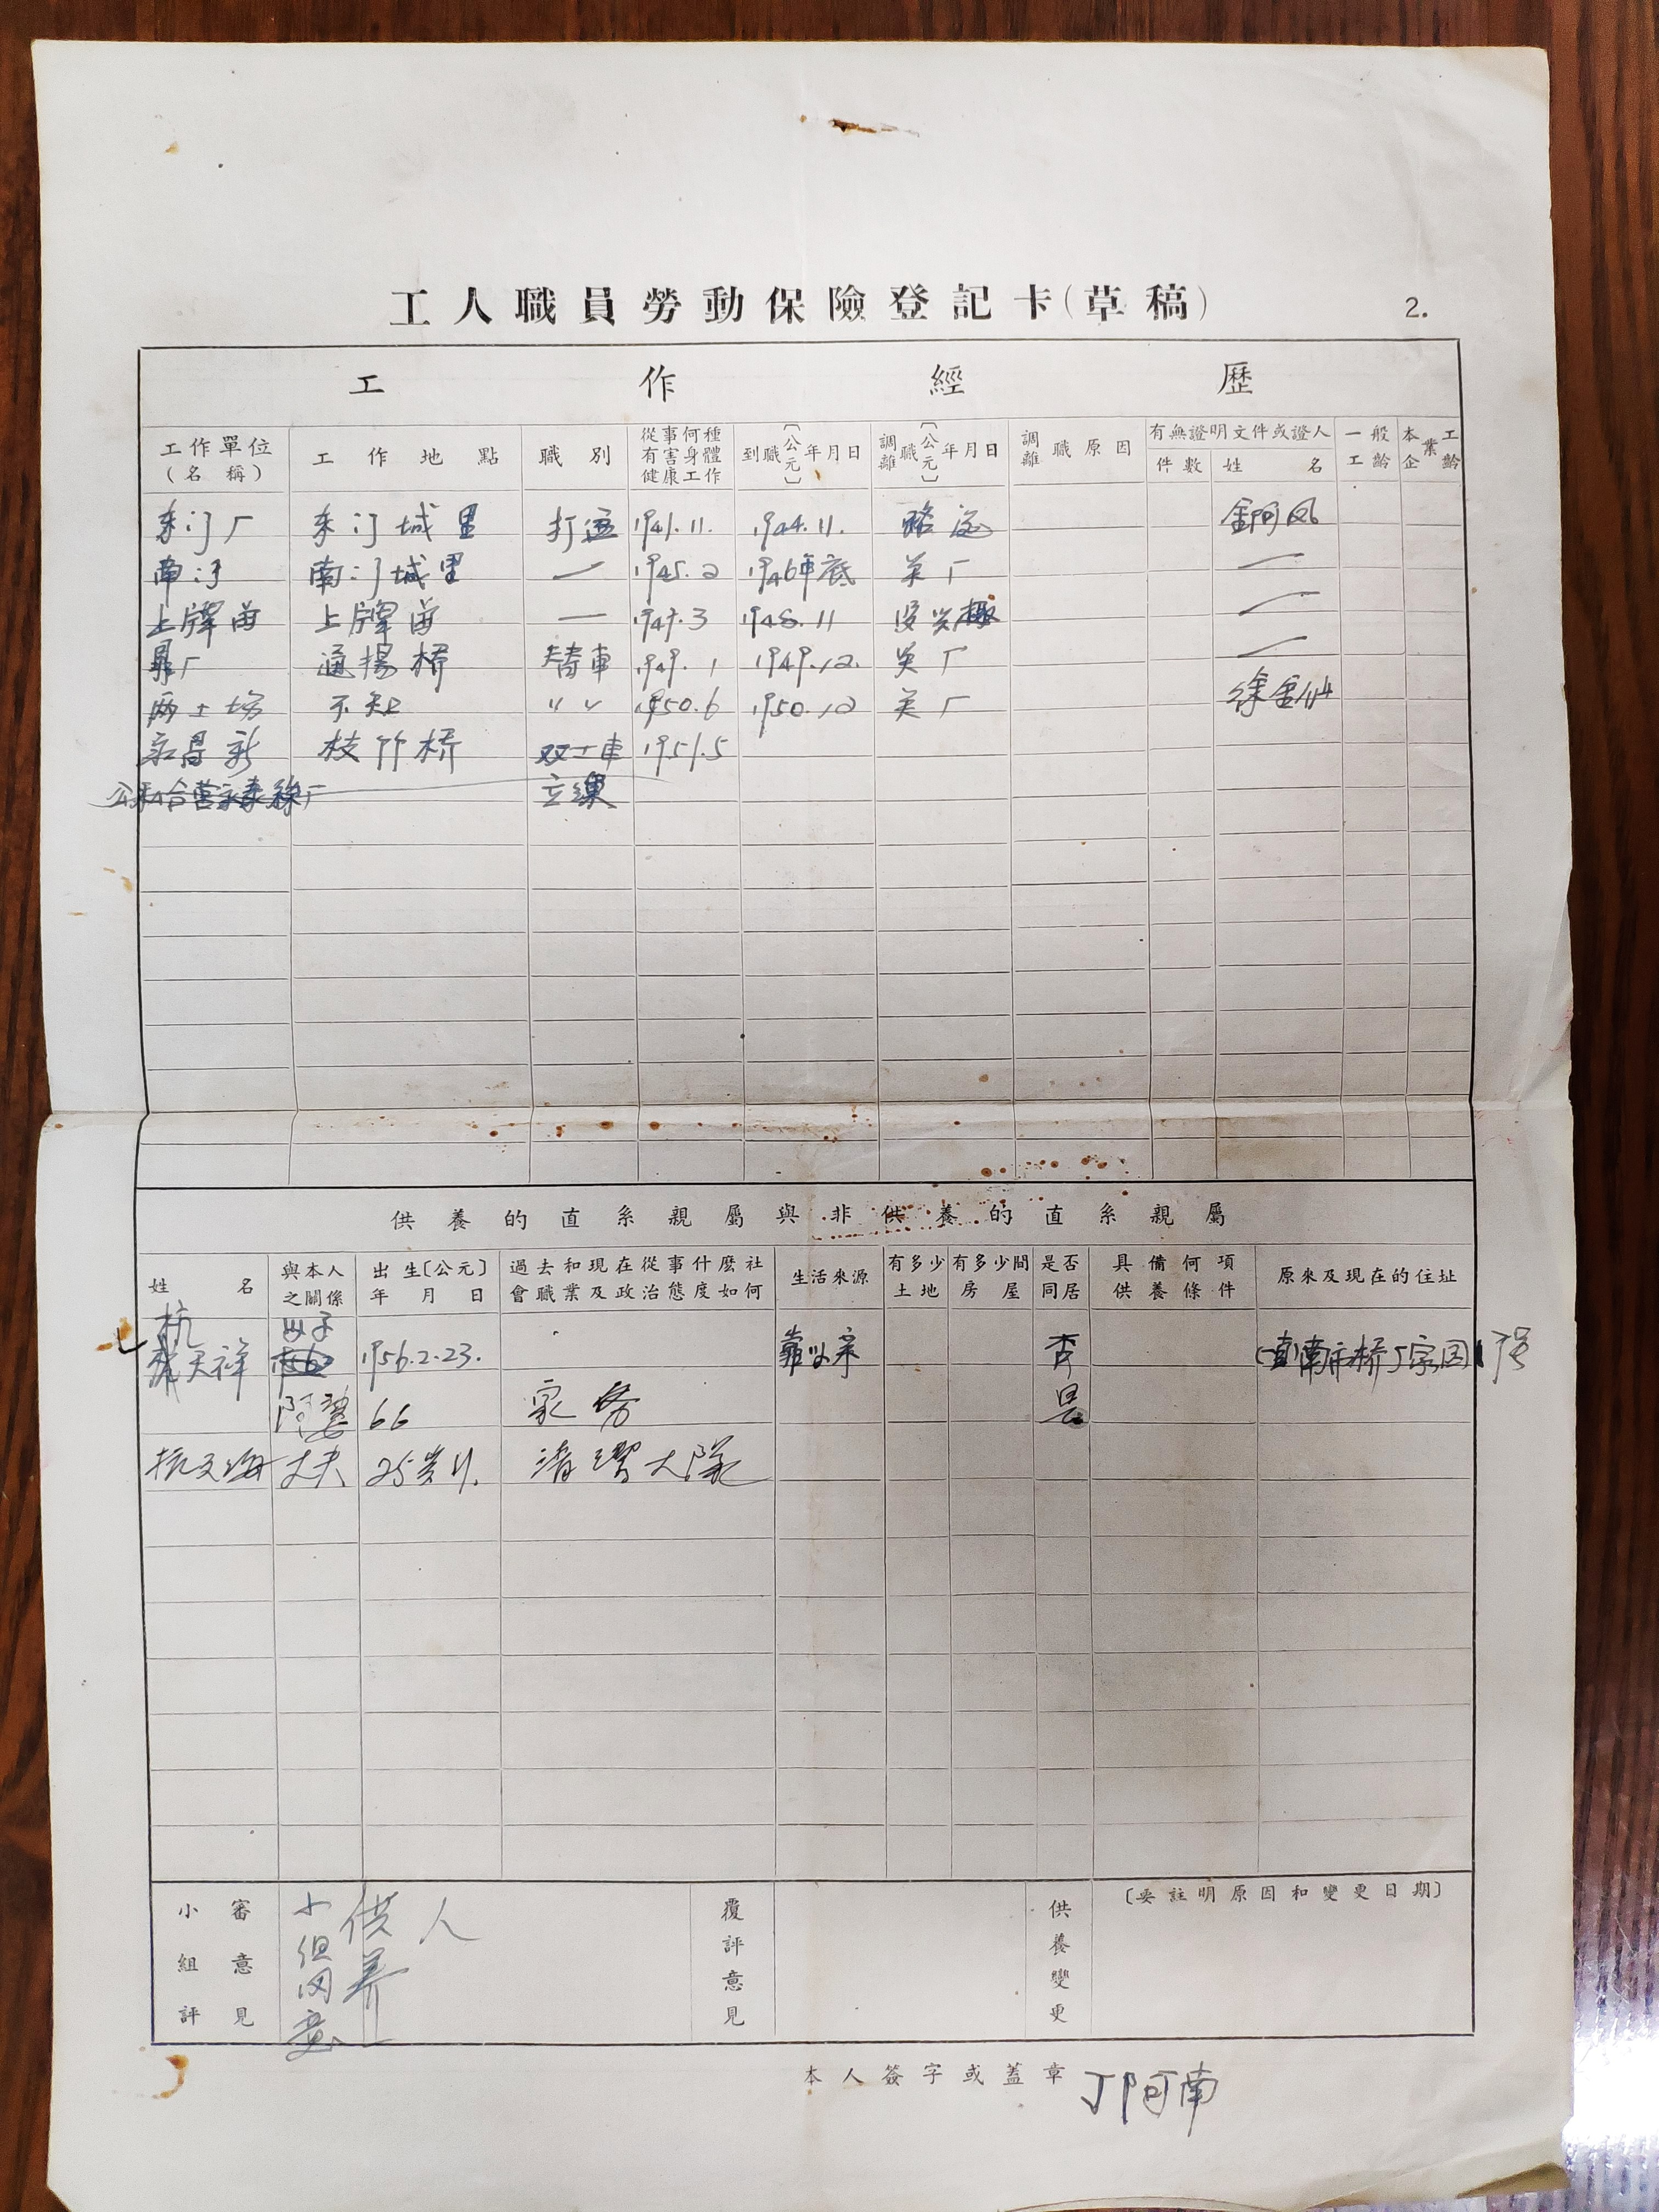 工人職員勞動保險登記卡(草稿) 2.
工作經歷
工作單位(名稱) 工作地點 職別 從事何種有害身體健康工作 到職〔公元〕年月日 調離職〔公元〕年月日 調離職原因 有無證明文件或證人 件數 姓名 一般工齡 本企業工齡
东门厂 东门城里 打 1941.11. 1944.11. 金阿凤
南门 南门城里 1945.2 1946年底 关厂
上 上 1947.3 1948.11 没兴趣
厂 通揚桥 車 1949.1 1949.12. 关厂
不知 〃〃 1950.6 1950.12 关厂 徐金仙
永昌新 枝竹桥 双工車 1951.5
公私合营永泰絲厂 立繅
供養的直系親屬與非供養的直系親屬
姓名 與本人之關係 出生〔公元〕年月日 過去和現在從事什麼社會職業及政治態度如何 生活來源 有多少土地 有多少間房屋 是否同居 具備何項供養條件 原來及現在的住址
杭天祥 子 1956.2.23. 靠 否 南市桥丁家
阿婆 66 家务 是
杭文海 丈夫 25岁 大隊
小組評審意見 小组同意供养 人 覆評意見 供養變更 〔要註明原因和變更日期〕
本人簽字或蓋章 丁阿南